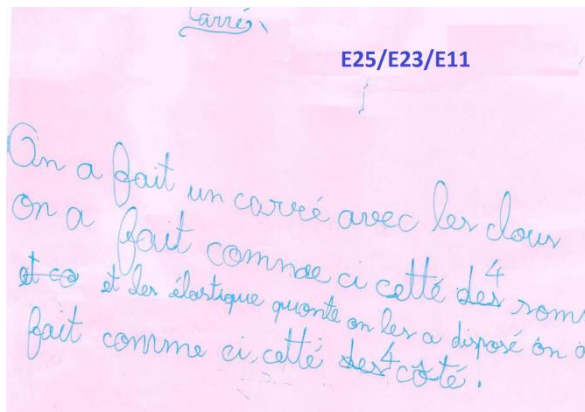 Carré
E25/E23/E11
On a fait un carré avec les clous
on a fait comme ci cetté des 4 som
et co et les élastique quonte on les a disposé on a
fait comme ci cetté des 4 côté.